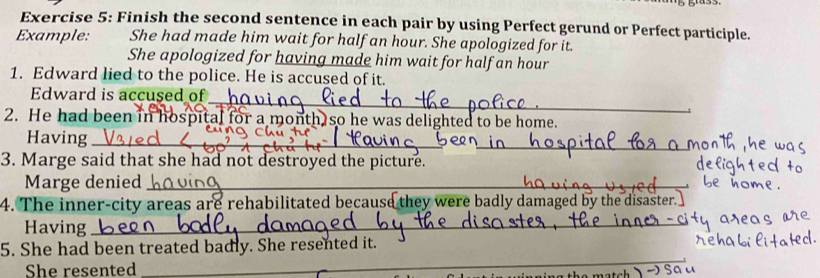 Exercise 5: Finish the second sentence in each pair by using Perfect gerund or Perfect participle.
Example: She had made him wait for half an hour. She apologized for it.
She apologized for having made him wait for half an hour
1. Edward lied to the police. He is accused of it.
Edward is accused of having lied to the police.
xảy ra trc
2. He had been in hospital for a month, so he was delighted to be home.
cùng chủ từ
Having V3/ed < bỏ 1 chủ từ / Having been in hospital for a month, he was
delighted to
3. Marge said that she had not destroyed the picture.
Marge denied having having V3/ed be home.
4. The inner-city areas are rehabilitated because they were badly damaged by the disaster.
Having been badly damaged by the disaster, the inner-city areas are
rehabilitated.
5. She had been treated badly. She resented it.
She resented
the match → sau